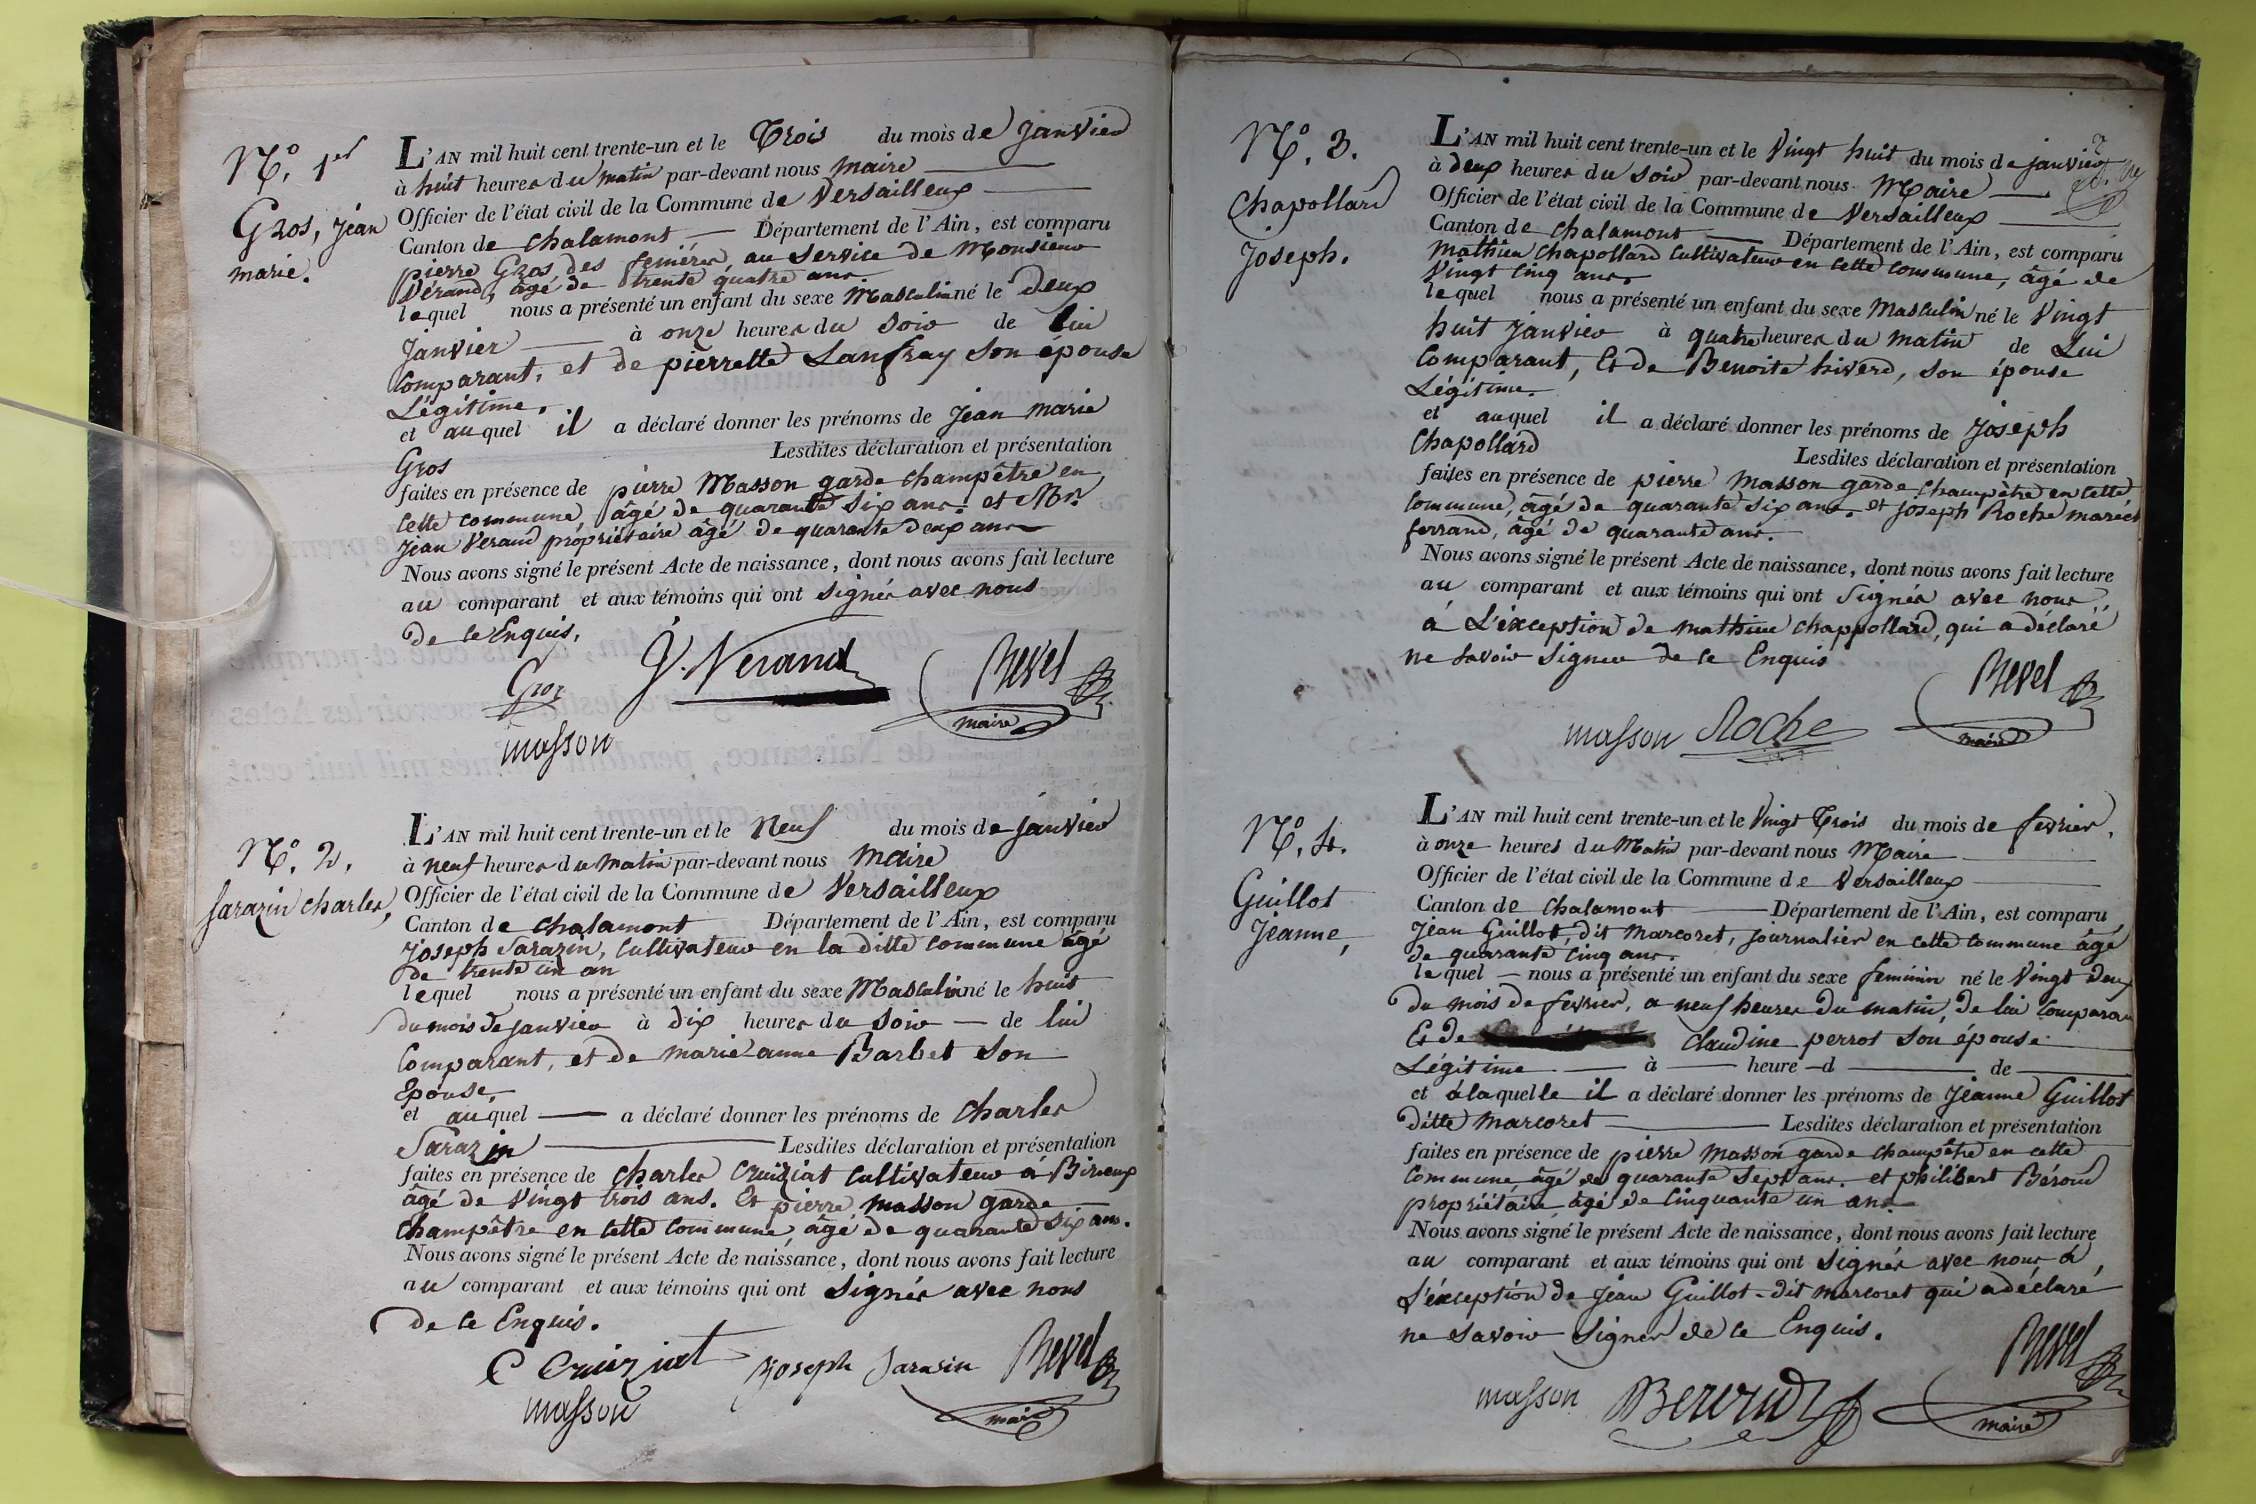 N.º 1er
Gros, Jean
marie.
L'AN mil huit cent trente-un et le Trois du mois de janvier
à huit heures du matin par-devant nous maire
Officier de l'état civil de la Commune de Versailleux
Canton de chalamont Département de l'Ain, est comparu
pierre Gros, des au service de Monsieur
Vérand, âgé de trente quatre ans.
lequel nous a présenté un enfant du sexe Masculin né le deux
janvier à onze heures du soir de lui
comparant, et de pierrette Lanfray son épouse
Légitime.
et auquel il a déclaré donner les prénoms de jean marie
Gros Lesdites déclaration et présentation
faites en présence de pierre Masson garde champêtre en
cette commune, âgé de quarante six ans. et Mr.
jean Veraud propriétaire âgé de quarante deux ans
Nous avons signé le présent Acte de naissance, dont nous avons fait lecture
au comparant et aux témoins qui ont signés avec nous
de ce Enquis.
Gros J. Verand Revel
maire
masson
N.º 2.
Sarazin charles,
L'AN mil huit cent trente-un et le Neuf du mois de janvier
à neuf heures du matin par-devant nous maire
Officier de l'état civil de la Commune de Versailleux
Canton de chalamont Département de l'Ain, est comparu
joseph Sarazin, cultivateur en la ditte commune âgé
de trente un an
lequel nous a présenté un enfant du sexe Masculin né le huit
du mois de janvier à dix heures du soir de lui
comparant, et de marie anne Barbet son
Epouse,
et auquel a déclaré donner les prénoms de charles
Sarazin Lesdites déclaration et présentation
faites en présence de charles Cruiziat cultivateur à Birieux
âgé de vingt trois ans. Et pierre masson garde
champêtre en cette commune, âgé de quarante six ans.
Nous avons signé le présent Acte de naissance, dont nous avons fait lecture
au comparant et aux témoins qui ont signés avec nous
de ce Enquis.
C Cruiziat joseph Sarasin Revel
masson maire
N.º 3.
Chapollard
Joseph.
L'AN mil huit cent trente-un et le Vingt huit du mois de janvier
à deux heures du soir par-devant nous Maire
Officier de l'état civil de la Commune de Versailleux
Canton de chalamont Département de l'Ain, est comparu
mathieu Chapollard cultivateur en cette commune, âgé de
vingt cinq ans.
lequel nous a présenté un enfant du sexe Masculin né le Vingt
huit janvier à quatre heures du matin de Lui
comparant, Et de Benoite hiverd, son épouse
Légitime.
et auquel il a déclaré donner les prénoms de joseph
Chapollard Lesdites déclaration et présentation
faites en présence de pierre masson garde champêtre en cette
commune, âgé de quarante six ans. et joseph Roche marécl
ferrand, âgé de quarante ans.
Nous avons signé le présent Acte de naissance, dont nous avons fait lecture
au comparant et aux témoins qui ont Signés avec nous
à L'exception de mathieu chappollard, qui a déclaré
ne savoir signer de ce Enquis
Revel
masson Roche maire
N.º 4.
Guillot
Jeanne,
L'AN mil huit cent trente-un et le Vingt Trois du mois de fevrier,
à onze heures du Matin par-devant nous Maire
Officier de l'état civil de la Commune de Versailleux
Canton de chalamont Département de l'Ain, est comparu
jean Guillot, dit marcoret, journalier en cette commune âgé
de quarante cinq ans.
lequel nous a présenté un enfant du sexe feminin né le Vingt deux
du mois de fevrier, a neuf heures du matin, de lui comparan
Et de claudine perrot son épouse
Légitime à heure d de
et à laquelle il a déclaré donner les prénoms de jeanne Guillot
ditte marcoret Lesdites déclaration et présentation
faites en présence de pierre masson garde champêtre en cette
commune âgé de quarante sept ans. et philibert Béroud
propriétaire, âgé de cinquante un ans
Nous avons signé le présent Acte de naissance, dont nous avons fait lecture
au comparant et aux témoins qui ont signés avec nous à
L'éxception de jean Guillot dit marcoret qui a déclaré
ne savoir signer de ce Enquis.
Revel
masson Beroud
maire